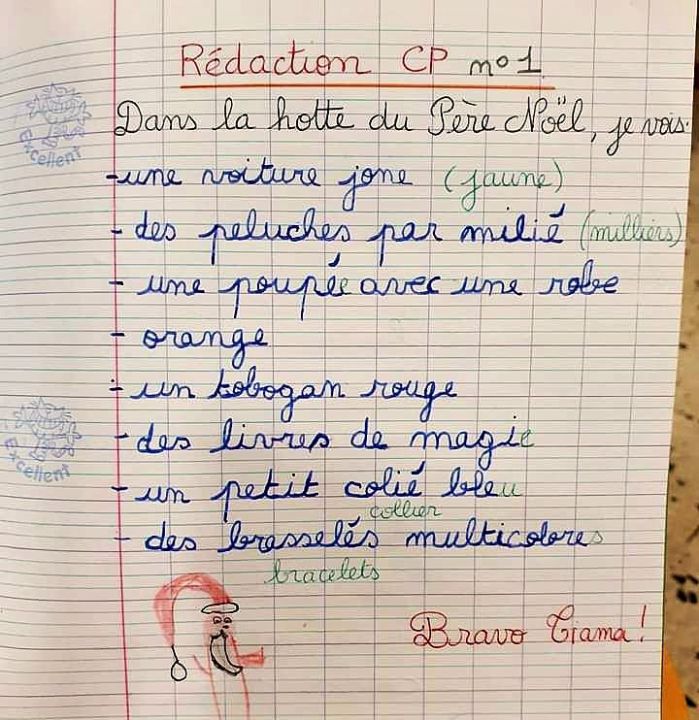 Rédaction CP n°1
Dans la hotte du Père Noël, je vois:
Excellent
- une voiture jone (jaune)
- des peluches par milié (milliers)
- une poupée avec une robe
- orange
- un tobogan rouge
- des livres de magie
Excellent
- un petit colié bleu
collier
- des brasselés multicolores
bracelets
Bravo Tiama!